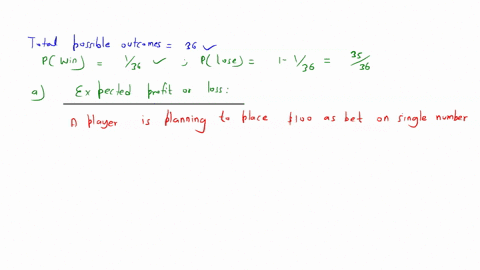 Total possible outcomes = 36 ✓
P(Win) = 1/36 ✓ ; P(lose) = 1 - 1/36 = 35/36
a) Expected profit or loss:
A player is planning to place $100 as bet on single number